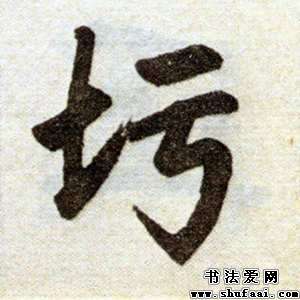 圬
书法爱网
www.shufaai.com